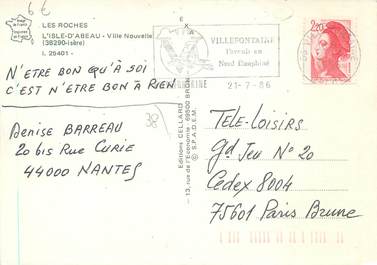 6€
LES ROCHES
L'ISLE-D'ABEAU - Ville Nouvelle
(38290-Isère)
I. 25401 -
N'ETRE BON QU'À SOI
C'EST N'ETRE BON À RIEN
38
Denise BARREAU
20 bis Rue CURIE
44000 NANTES
Editions CELLARD
13, rue de l'Economie - 69500 BRON
© S.P.A.D.E.M.
VILLEFONTAINE
l'avenir en
Nord Dauphiné
21-7-86
2,20
TELE-LOISIRS
gd JEU N° 20
Cedex 8004
75601 Paris Brune